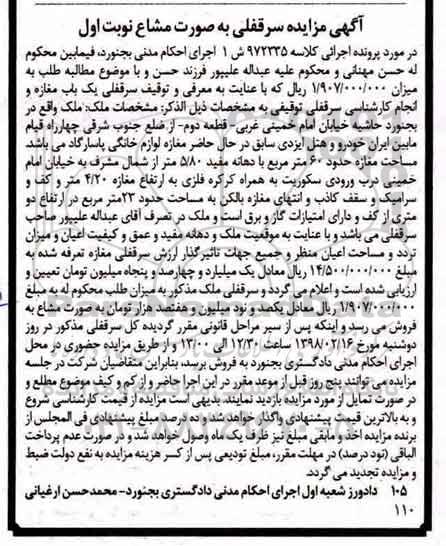 آگهی مزایده سرقفلی به صورت مشاع نوبت اول
در مورد پرونده اجرائی کلاسه ۹۷۲۳۳۵ ش ۱ اجرای احکام مدنی بجنورد، فیمابین محکوم
له حسن مهنانی و محکوم علیه عبداله علیپور فرزند حسن و با موضوع مطالبه طلب به
میزان ۱/۹۰۷/۰۰۰/۰۰۰ ریال که با عنایت به معرفی و توقیف سرقفلی یک باب مغازه و
انجام کارشناسی سرقفلی توقیفی به مشخصات ذیل الذکر: مشخصات ملک: ملک واقع در
بجنورد حاشیه خیابان امام خمینی غربی- قطعه دوم- از ضلع جنوب شرقی چهارراه قیام
مابین ایران خودرو و هتل ایزدی سابق در حال حاضر مغازه لوازم خانگی پاسارگاد می باشد.
مساحت مغازه حدود ۶۰ متر مربع با دهانه مفید ۵/۸۰ متر از شمال مشرف به خیابان امام
خمینی درب ورودی سکوریت به همراه کرکره فلزی به ارتفاع مغازه ۴/۲۰ متر و کف و
سرامیک و سقف کاذب و انتهای مغازه بالکن به مساحت حدود ۲۳متر مربع در ارتفاع دو
متری از کف و دارای امتیازات گاز و برق است و ملک در تصرف آقای عبداله علیپور صاحب
سرقفلی می باشد و با عنایت به موقعیت ملک و دهانه مفید و عمق و کیفیت اعیان و میزان
تردد و مساحت اعیان منظر و جمیع جهات تاثیرگذار ارزش سرقفلی مغازه تعرفه شده به
مبلغ ۱۴/۵۰۰/۰۰۰/۰۰۰ ریال معادل یک میلیارد و چهارصد و پنجاه میلیون تومان تعیین و
ارزیابی شده است و اعلام می گردد و سرقفلی ملک مذکور به میزان طلب محکوم له به مبلغ
۱/۹۰۷/۰۰۰/۰۰۰ ریال معادل یکصد و نود میلیون و هفتصد هزار تومان به صورت مشاع به
فروش می رسد و اینکه پس از سیر مراحل قانونی مقرر گردیده کل سرقفلی مذکور در روز
دوشنبه مورخ ۱۳۹۸/۰۲/۱۶ ساعت ۱۲/۳۰ الی ۱۳/۰۰ و از طریق مزایده حضوری در محل
اجرای احکام مدنی دادگستری بجنورد به فروش برسد، بنابراین متقاضیان شرکت در جلسه
مزایده می توانند پنج روز قبل از موعد مقرر در این اجرا حاضر و از کم و کیف موضوع مطلع و
در صورت تمایل از مورد مزایده بازدید نمایند. بدیهی است مزایده از قیمت کارشناسی شروع
و به بالاترین قیمت پیشنهادی واگذار خواهد شد و ده درصد مبلغ پیشنهادی فی المجلس از
برنده مزایده اخذ و مابقی مبلغ نیز ظرف یک ماه وصول خواهد شد و در صورت عدم پرداخت
الباقی (نود درصد) در مهلت مقرر، مبلغ تودیعی پس از کسر هزینه مزایده به نفع دولت ضبط
و مزایده تجدید می گردد.
۱۰۵ دادورز شعبه اول اجرای احکام مدنی دادگستری بجنورد- محمدحسن ارغیانی
۱۱۰